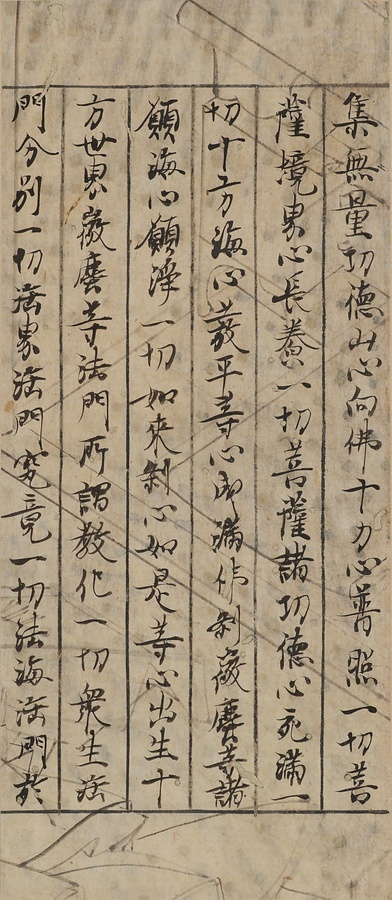 集無量功德山心向佛十力心普照一切菩
薩境界心長養一切菩薩諸功德心充滿一
切十方海心發平等心即滿佛刹微塵等諸
願海心願淨一切如來刹心如是等心出生十
方世界微塵等法門所謂教化一切衆生法
門分別一切法界法門究竟一切法海法門於